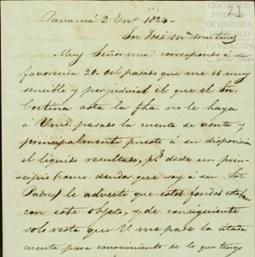 21
Panamá 2 En.º 1824-
Sor José M.ª Martinez
Muy Señor mio: correspondo à su
favorecida 20. del pasado que me es muy
sensible y perjudicial el que el Sor.
Cortina asta la fha. no le haya
à Vmd. pasado la cuenta de venta y
principalmente puesto à su disposicion
el liquido resultado, ps. desde un prin-
cipio (como deudor que soy a su Sor
Padre) le adverti que estos fondos estaban
con este objeto, y de consiguiente
solo resta que V. me pase la citada
cuenta para conocimiento de lo que tengo